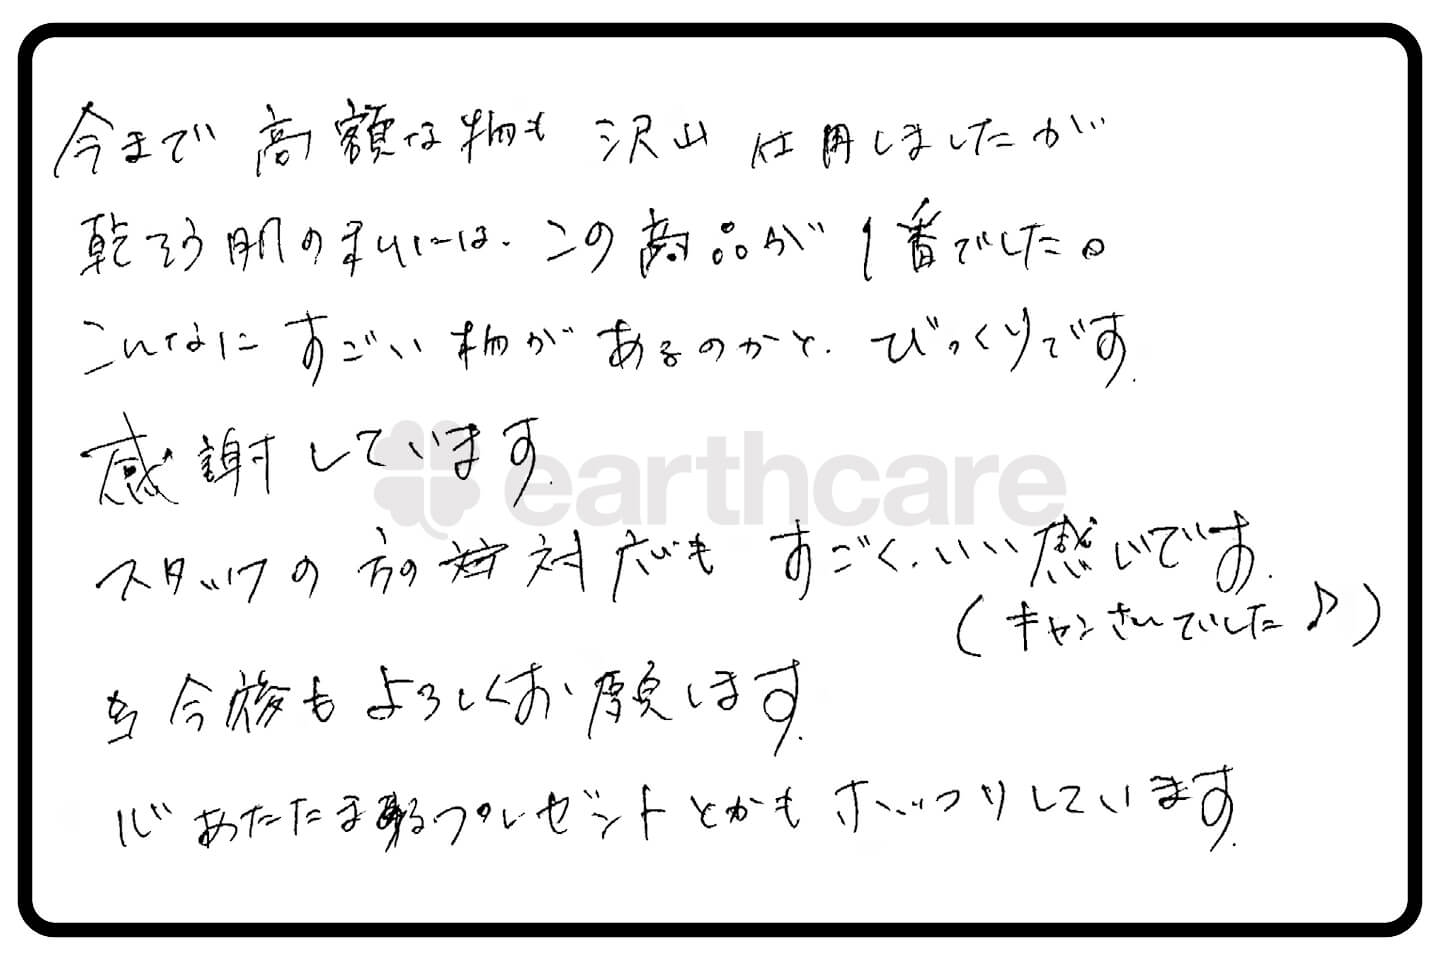 今まで 高額な物も 沢山 仕用しましたが
乾そう肌の私には、この商品が 1番でした。
こんなに すごい 物が あるのかと、びっくりです。
感謝しています。
earthcare
スタッフの 方の 対応も すごく、いい 感じです。
(キャンさんでした♪)
今後も よろしくお願します。
心あたたまるプレゼントとかも ホッコリしています。